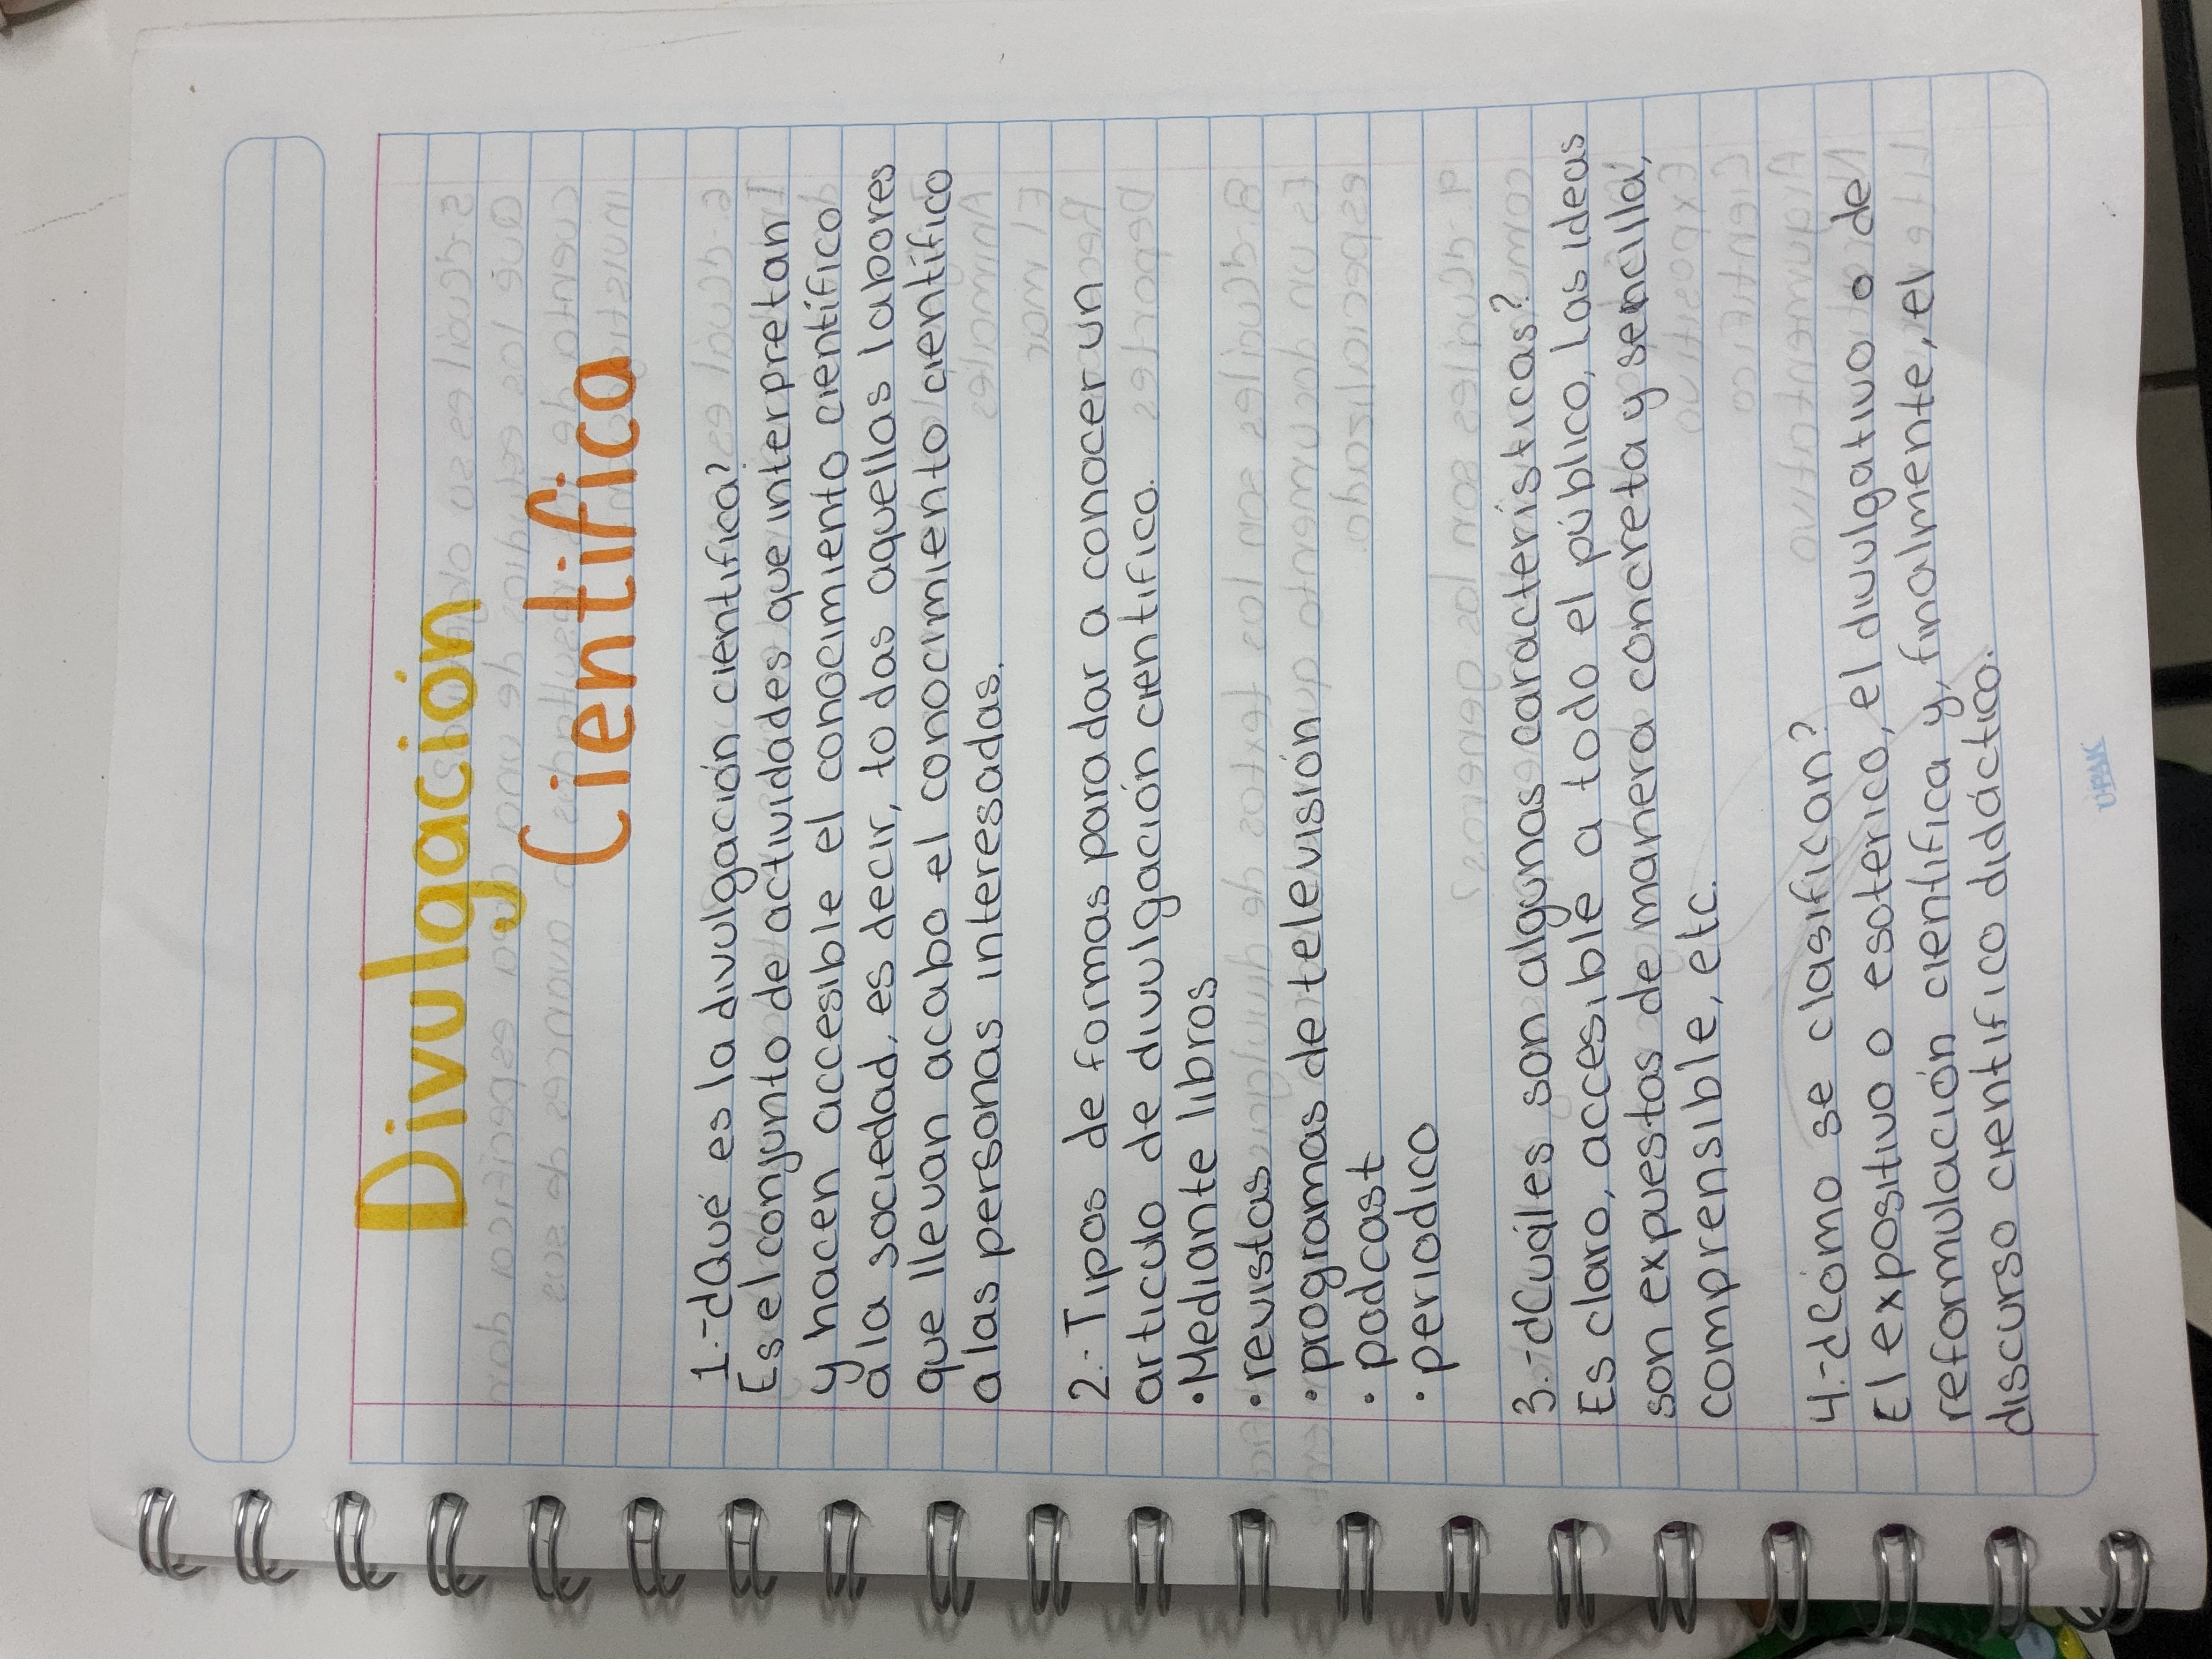 Divulgación
Científica
1.-¿Qué es la divulgación científica?
Es el conjunto de actividades que interpretan
y hacen accesible el conocimiento científico
a la sociedad, es decir, todas aquellas labores
que llevan acabo el conocimiento científico
a las personas interesadas.
2.- Tipos de formas para dar a conocer un
artículo de divulgación científico.
•Mediante libros
•revistas
•programas de televisión
•podcast
•periodico
3.-¿Cuáles son algunas características?
Es claro, accesible a todo el público, las ideas
son expuestas de manera concreta y sencilla,
comprensible, etc.
4.-¿Cómo se clasifican?
El expositivo o esoterico, el divulgativo o de
reformulación científica y, finalmente, el
discurso científico didáctico.